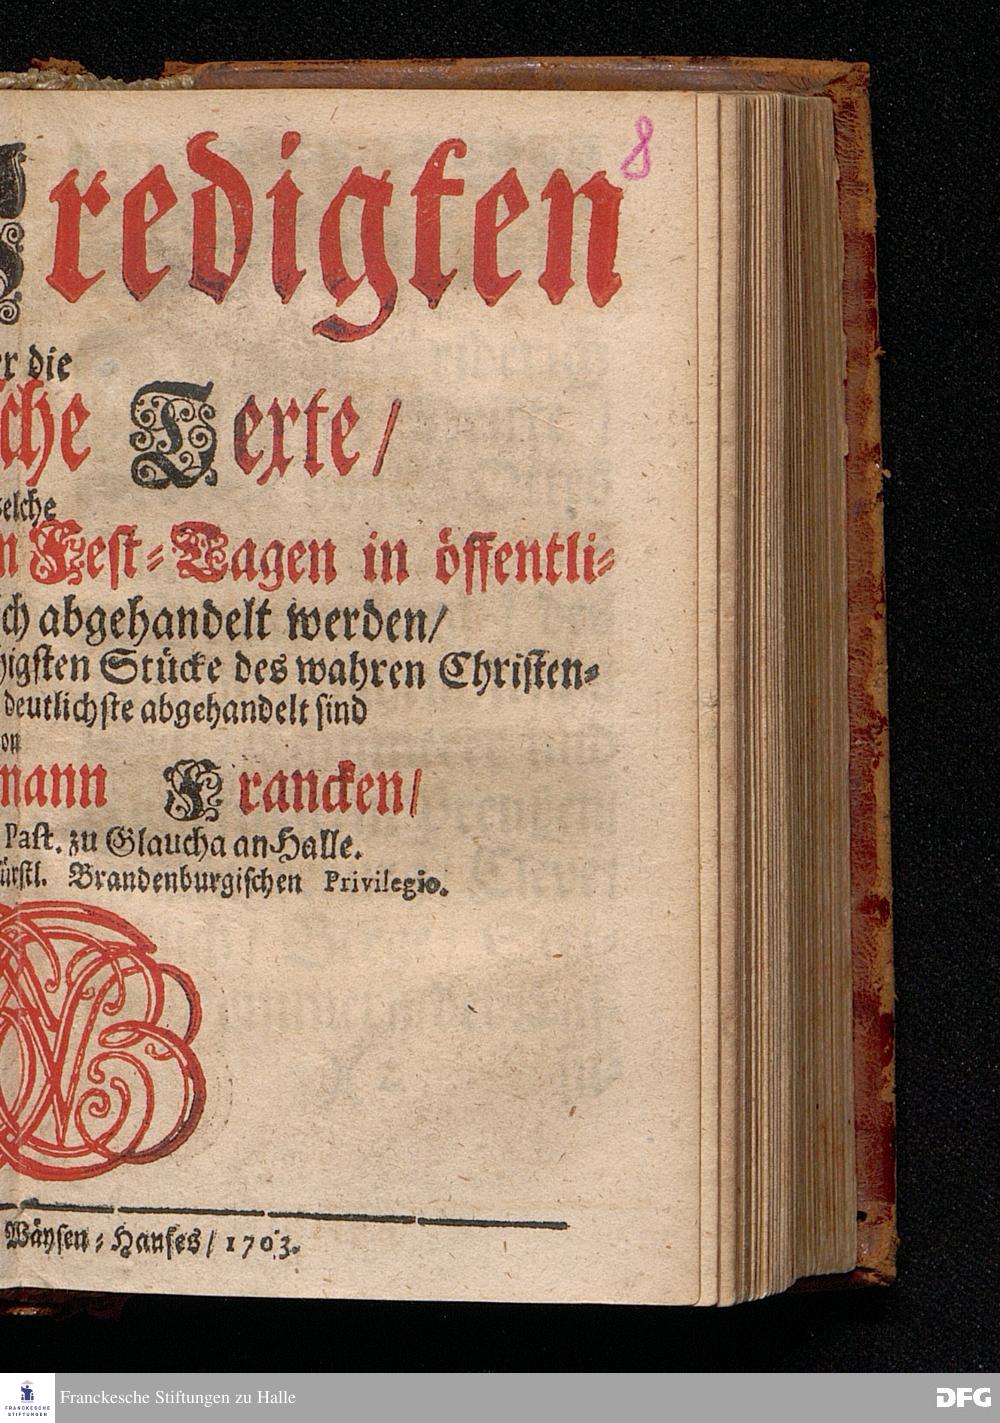 8
Predigten
er die
sche Texte/
welche
n Fest-Tagen in öffentli-
ich abgehandelt werden/
higsten Stücke des wahren Christen-
deutlichste abgehandelt sind
on
mann Francken/
Past. zu Glaucha an Halle.
ürstl. Brandenburgischen Privilegio.
Wäysen-Hauses/ 1703.
FRANCKESCHE STIFTUNGEN
Franckesche Stiftungen zu Halle
DFG